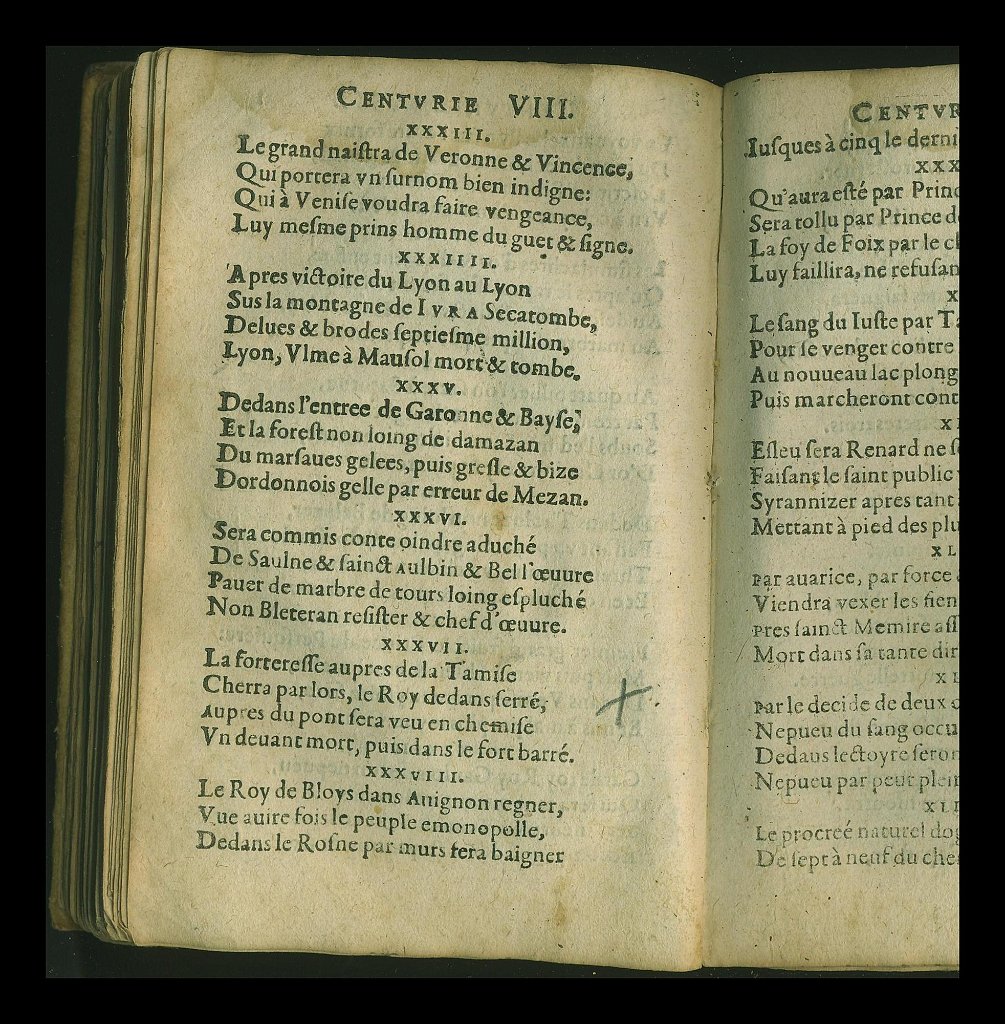 CENTVRIE VIII.
XXXIII.
Le grand naiſtra de Veronne & Vincence,
Qui portera vn ſurnom bien indigne:
Qui à Veniſe voudra faire vengeance,
Luy meſme prins homme du guet & ſigne.
XXXIIII.
Apres victoire du Lyon au Lyon
Sus la montagne de IVRA Secatombe,
Delues & brodes ſeptieſme million,
Lyon, Vlme à Mauſol mort & tombe.
XXXV.
Dedans l'entree de Garonne & Bayſe,
Et la foreſt non loing de damazan
Du marſaues gelees, puis greſle & bize
Dordonnois gelle par erreur de Mezan.
XXXVI.
Sera commis conte oindre aduché
De Saulne & ſainct Aulbin & Bel l'œuure
Pauer de marbre de tours loing eſpluché
Non Bleteran reſiſter & chef d'œuure.
XXXVII.
La fortereſſe aupres de la Tamiſe
Cherra par lors, le Roy dedans ſerré,
Aupres du pont ſera veu en chemiſe
Vn deuant mort, puis dans le fort barré.
XXXVIII.
Le Roy de Bloys dans Auignon regner,
Vue autre fois le peuple emonopolle,
Dedans le Roſne par murs fera baigner
CENTVR
Iuſques à cinq le derni
XXX
Qu'aura eſté par Princ
Sera tollu par Prince d
La foy de Foix par le c
Luy faillira, ne refuſan
X
Le ſang du Iuſte par T
Pour ſe venger contre
Au nouueau lac plong
Puis marcheront cont
X
Eſleu ſera Renard ne ſ
Faiſant le ſaint public
Syrannizer apres tant
Mettant à pied des plu
XL
Par auarice, par force
Viendra vexer les ſien
Pres ſainct Memire aſſ
Mort dans ſa tante dir
XL
Par le decide de deux
Nepueu du ſang occu
Dedaus lectoyre ſeron
Nepueu par peut plein
XLI
Le procreé naturel dog
De ſept à neuf du che